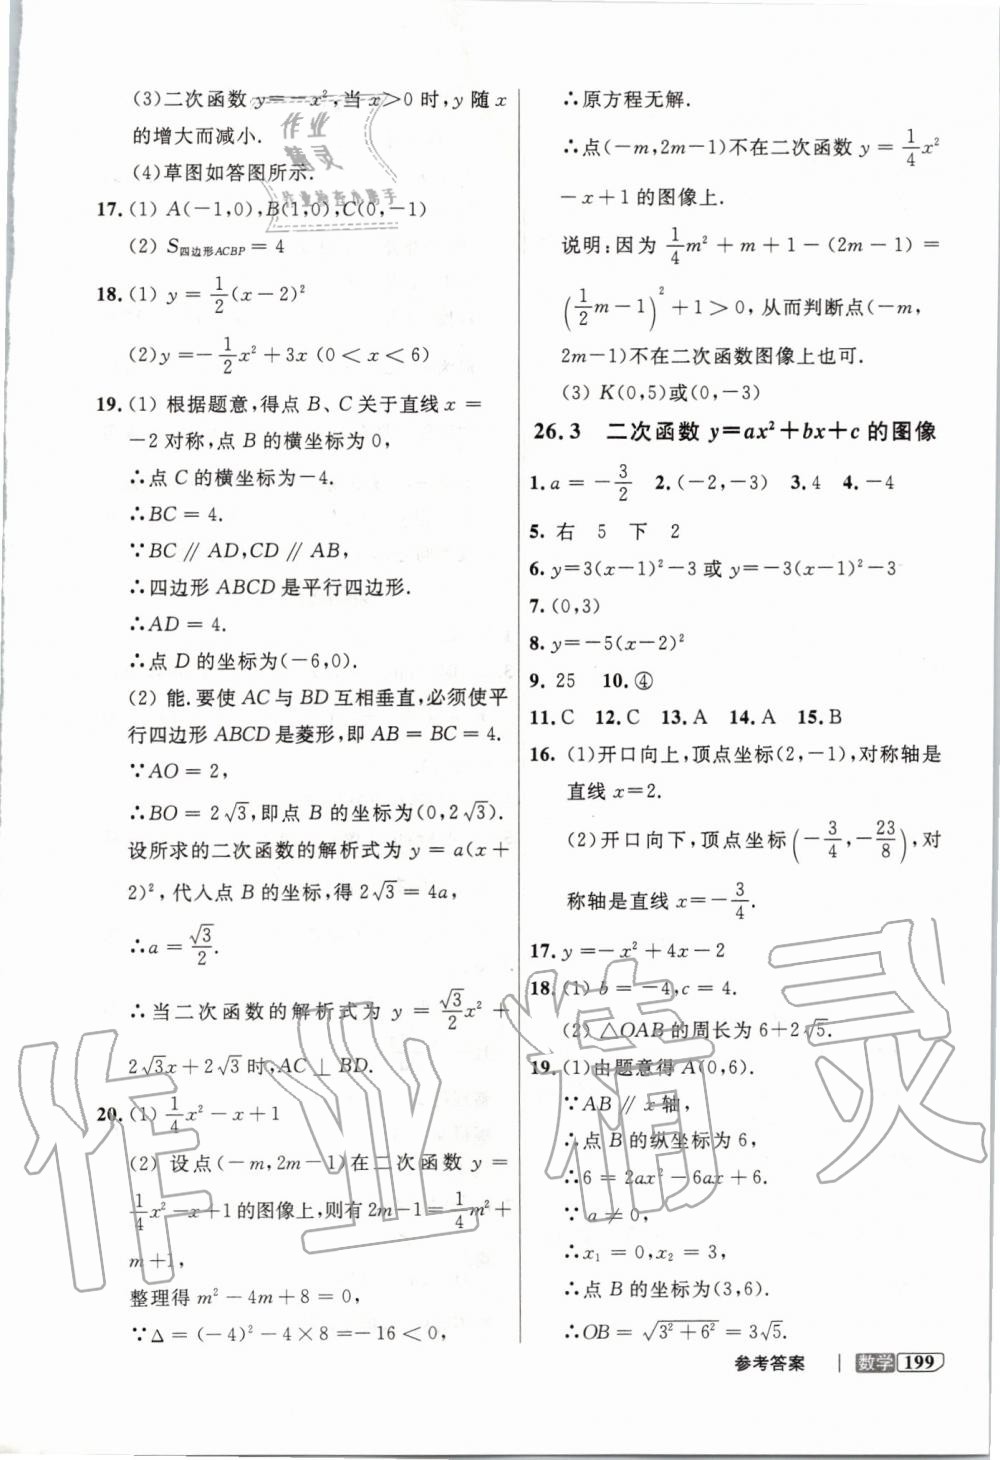 (3)二次函数 y=-x²,当 x>0 时,y 随 x
的增大而减小.
(4)草图如答图所示.
17.(1) A(-1,0),B(1,0),C(0,-1)
(2) S四边形ACBP = 4
18.(1) y = 1/2(x-2)²
(2)y=-1/2x²+3x (0<x<6)
19.(1) 根据题意,得点 B、C 关于直线 x =
-2 对称,点 B 的横坐标为 0,
∴点 C 的横坐标为-4.
∴BC = 4.
∵BC // AD,CD // AB,
∴四边形 ABCD 是平行四边形.
∴AD = 4.
∴点 D 的坐标为(-6,0).
(2) 能.要使 AC 与 BD 互相垂直,必须使平
行四边形 ABCD 是菱形,即 AB = BC = 4.
∵AO = 2,
∴BO = 2√3,即点 B 的坐标为(0,2√3).
设所求的二次函数的解析式为 y = a(x+
2)²,代人点 B 的坐标,得 2√3 = 4a,
∴a = √3/2.
∴当二次函数的解析式为 y = √3/2x² +
2√3x+2√3时,AC ⊥ BD.
20.(1) 1/4x²-x+1
(2) 设点(-m,2m-1)在二次函数 y =
1/4x²-x+1的图像上,则有 2m-1=1/4m²+
m+1,
整理得 m²-4m+8 = 0,
∵Δ = (-4)²-4×8 =-16 < 0,
∴原方程无解.
∴点(-m,2m-1)不在二次函数 y = 1/4x²
-x+1 的图像上.
说明:因为 1/4m² + m + 1 - (2m - 1) =
(1/2m-1)²+1>0,从而判断点(-m,
2m-1)不在二次函数图像上也可.
(3) K(0,5)或(0,-3)
26.3 二次函数 y=ax²+bx+c 的图像
1.a = -3/2 2.(-2,-3) 3.4 4.-4
5. 右 5 下 2
6.y=3(x-1)²-3 或 y=-3(x-1)²-3
7.(0,3)
8.y=-5(x-2)²
9. 25 10.④
11.C 12.C 13.A 14.A 15.B
16.(1)开口向上,顶点坐标(2,-1),对称轴是
直线 x=2.
(2)开口向下,顶点坐标(-3/4,-23/8),对
称轴是直线 x=-3/4.
17.y=-x²+4x-2
18.(1) b = -4,c = 4.
(2) △OAB 的周长为 6+2√5.
19.(1)由题意得 A(0,6).
∵AB // x 轴,
∴点 B 的纵坐标为 6,
∴6 = 2ax²-6ax+6.
∵a ≠ 0,
∴x₁ = 0,x₂ = 3,
∴点 B 的坐标为(3,6).
∴OB = √3²+6² = 3√5.
参考答案 | 数学 199
作业
精灵
作业精灵